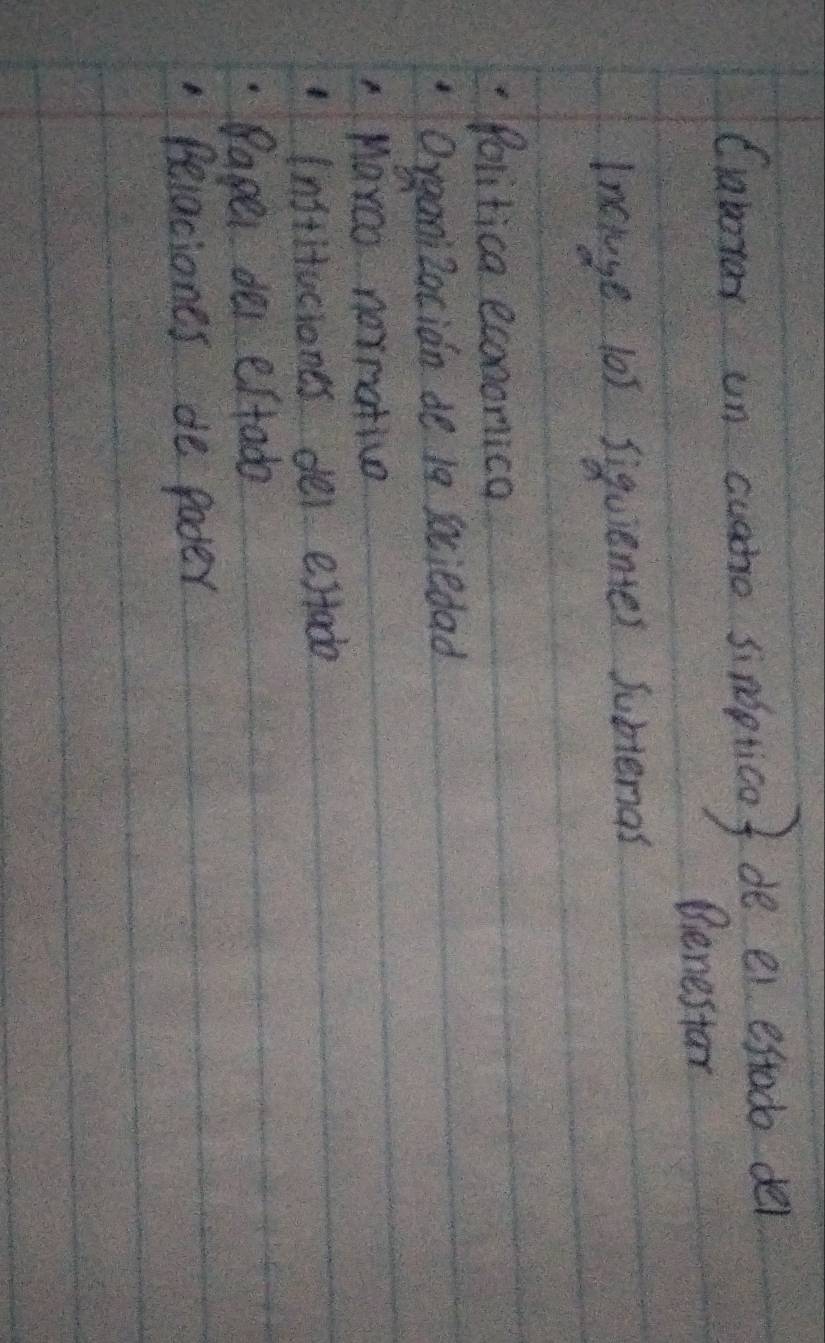 Elaborar un cuadro sinóptico } de el estado del
Bienestar
Incluye los siguientes subtemas
• Politica economica
• Organización de la sociedad
• Marco normativo
• Instituciones del estado
• Papel del estado
• Relaciones de poder